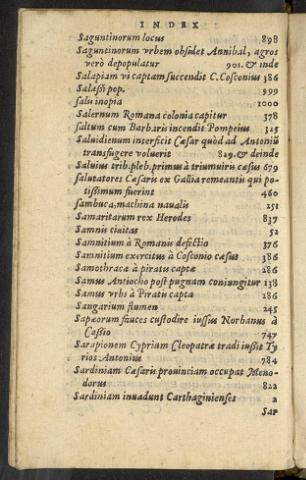 INDEX
Saguntinorum locus 898
Saguntinorum vrbem obsidet Annibal, agros
verò depopulatur 901. & inde
Salapiam vi captam succendit C. Cosconius 386
Salassi pop. 999
salis inopia 1000
Salernum Romana colonia capitur 378
saltum cum Barbaris incendit Pompeius 325
Saluidienum interficit Cæsar quòd ad Antoniũ
transfugere voluerit 829. & deinde
Saluius trib. pleb. primus à triumuiris cæsus 679
salutatores Cæsaris ex Gallia remeantis qui po-
tissimum fuerint 460
sambuca, machina naualis 251
Samaritarum rex Herodes 837
Samnii ciuitas 52
Samnitium à Romanis defectio 376
Samnitium exercitus à Cosconio cæsus 386
Samothraca à piratis captæ 286
Samus Antiocho post pugnam coniungitur 138
Samus vrbs à Piratis capta 286
Sangarium flumen 245
Sapæorum fauces custodire iussus Norbanus à
Cassio 747
Sarapionem Cyprium Cleopatræ tradi iussit Ty
rios Antonius 784
Sardiniam Cæsaris prouinciam occupat Meno-
dorus 822
Sardiniam inuadunt Carthaginienses 2
Sar